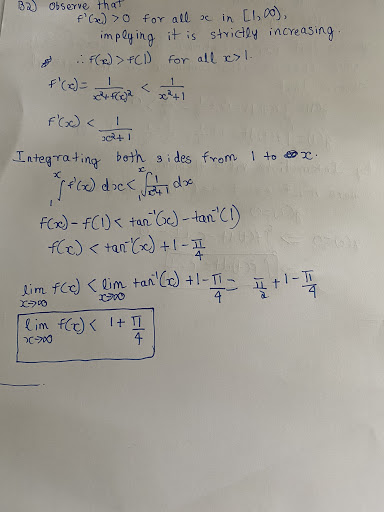 32) Observe that
f'(x) > 0 for all x in [1,∞),
implying it is strictly increasing.
∴ f(x) > f(1) for all x>1.
f'(x) = 1/(x²+f(x)²) < 1/(x²+1)
f'(x) < 1/(x²+1)
Integrating both sides from 1 to x.
∫₁ˣ f'(x) dx < ∫₁ˣ 1/(x²+1) dx
f(x) - f(1) < tan⁻¹(x) - tan⁻¹(1)
f(x) < tan⁻¹(x) + 1 - π/4
lim x→∞ f(x) < lim x→∞ tan⁻¹(x) + 1 - π/4 = π/2 + 1 - π/4
lim x→∞ f(x) < 1 + π/4